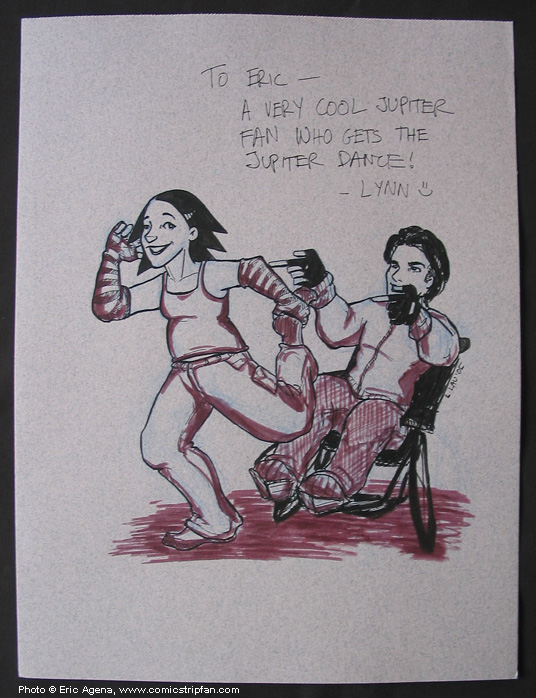 TO ERIC —
A VERY COOL JUPITER
FAN WHO GETS THE
JUPITER DANCE!
- LYNN ☺
L. LAU '05
Photo © Eric Agena, www.comicstripfan.com